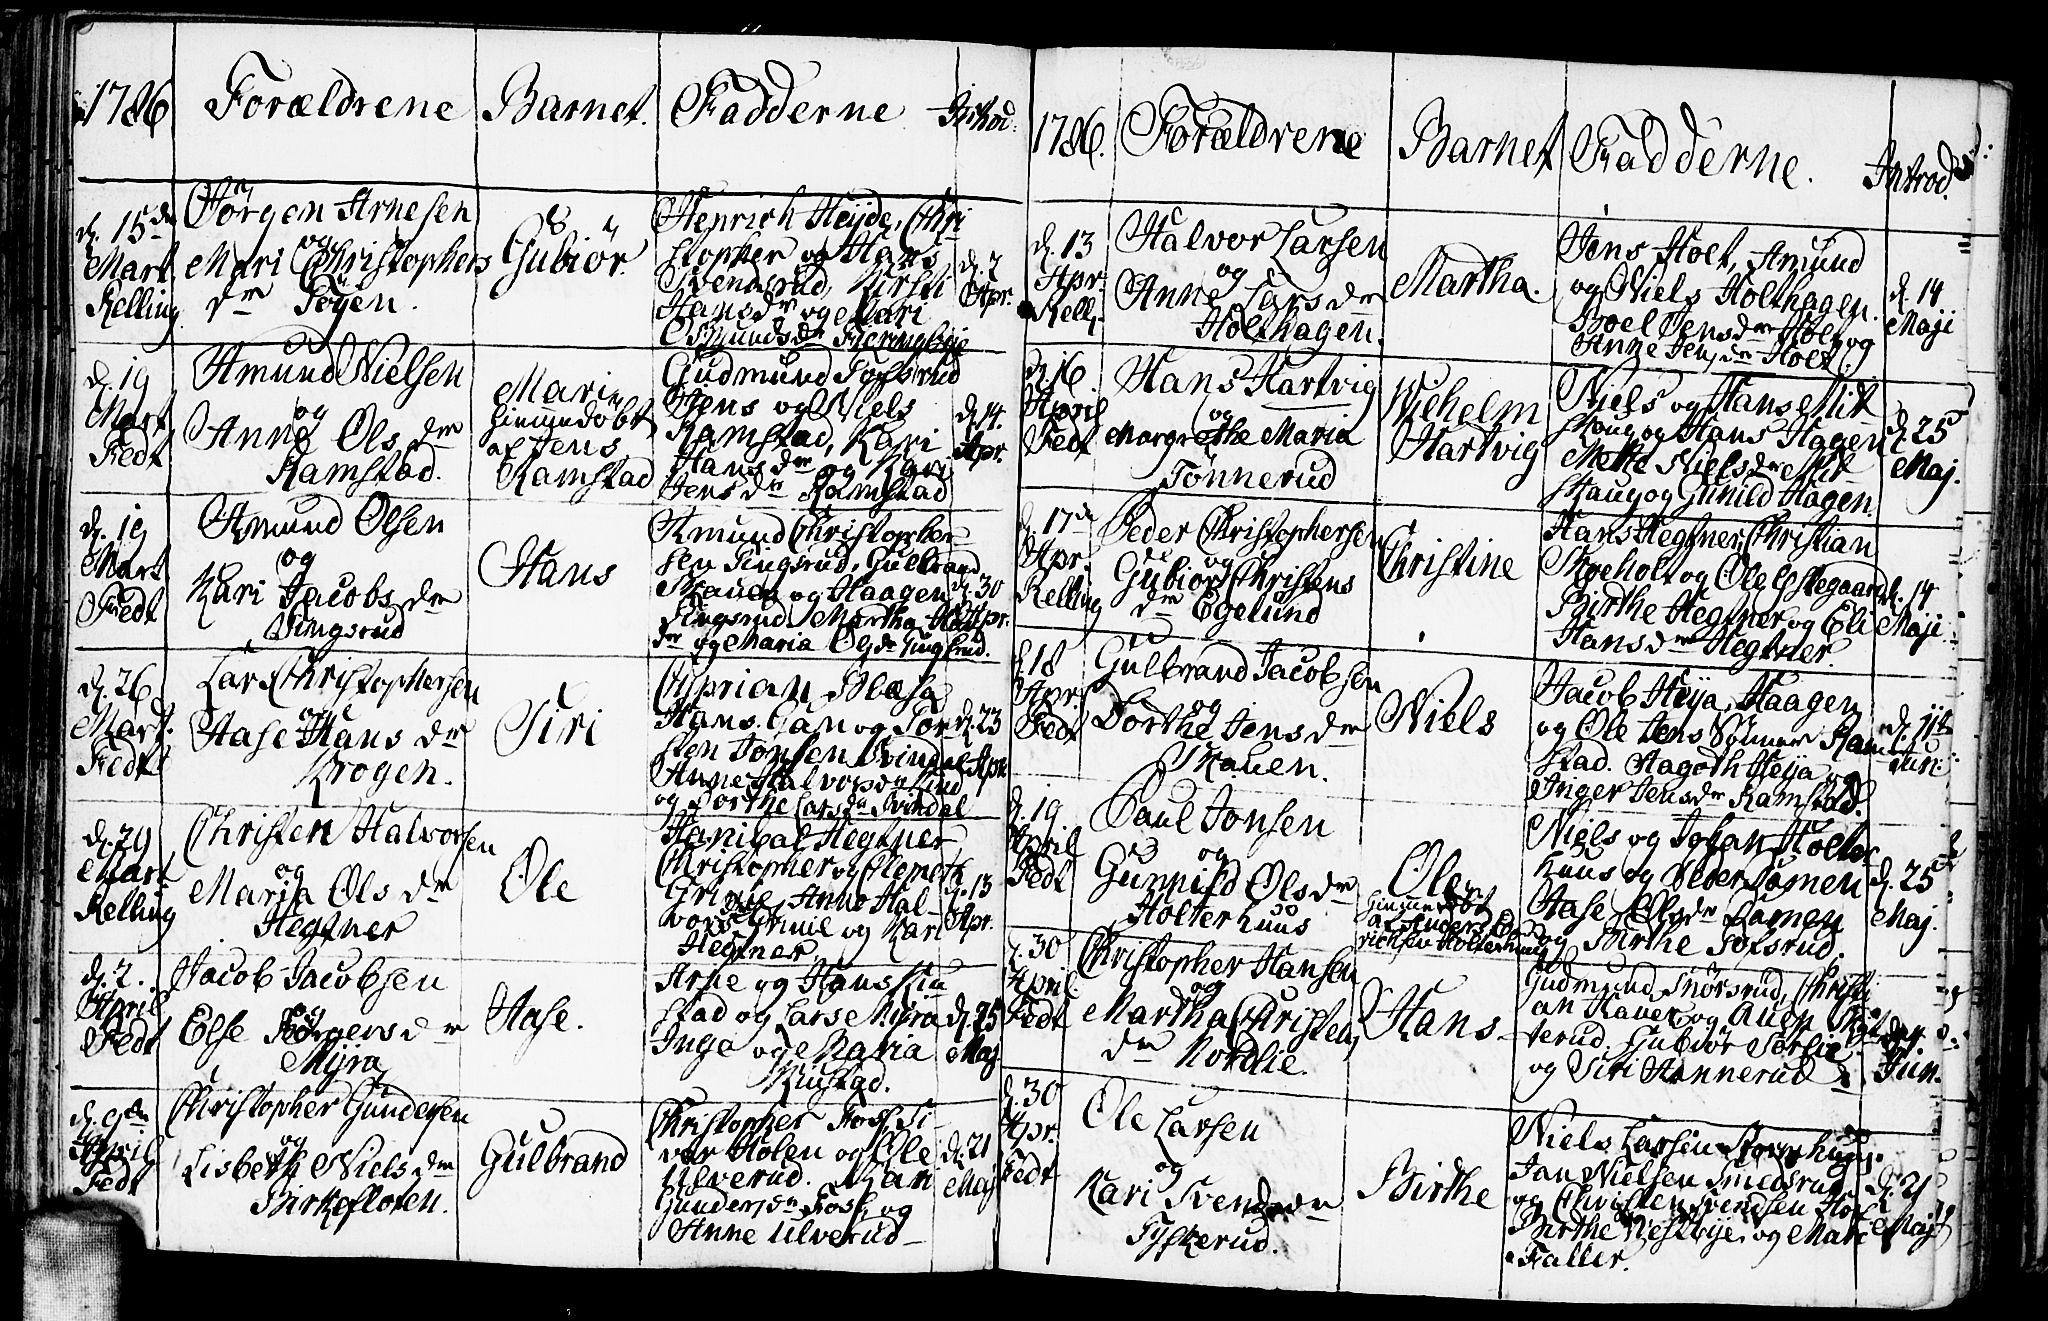 1786 Forældrene Barnet. Fadderne Introd:
d. 15de Mart Kelling
Jörgen Arnesen
og
Mari Christophers
dr Togen.
Gubiör.
Henrich Heyde, Chri
stopher og Hans
Svendsrud, Kirsti
Hansdr og Mari
Osmundsdr Fieringbye
d. 2 Apr.
d. 19 Mart Fedt
Amund Nielsen
og
Anne Olsdr
Ramstad.
Mari
hiemmedøbt
af Jens
Ramstad
Gudmund Tofsrud
Jens og Niels
Ramstad, Kari
Hansdr og Kari
Jensdr Ramstad
d. 14. Apr.
d. 19 Mart Fedt
Amund Olsen
og
Kari Jacobsdr
Tingsrud
Hans
Amund Christopher-
sen Tingsrud, Gulbrand
Skauen og Haagen
Tingsrud, Martha
dr og Maria Olsdr Tingsrud.
d. 30 Apr.
d. 26 Mart. Fedt
Lars Christophersen
og
Aase Hansdr
Krogen.
Siri
Cyprian
Hans og Tor
sten Jonsen Svindal
Anne Halvorsdr Lind
og Dorthe Larsdr Svindal
d. 23 Apr.
d. 29 Mart Kelling
Christen Halvorsen
og
Maria Olsdr
Hegtner
Ole
Hanibal Hegtner
Christopher og Ole
Grinie, Anne Hal-
vorsdr Grinie og Kari
Hegtner
d. 13 Apr.
d. 2. April Fedt
Jacob Jacobsen
og
Else Jörgensdr
Myra
Aase.
Arne og Hans Kiu
stad og Lars Myra
Inge og Maria
Kiustad.
d. 25 Maj
d. 9de April Fedt
Christopher Gundersen
og
Lisbeth Nielsdr
Birkefloten.
Gulbrand
Christopher Foss, Si-
ver Holen og Ole
Ulverud. Kari
Gundersdr Foss og
Anne Ulverud
d. 21 Maj
1786. Forældrene Barnet Fadderne. Introd.
d. 13 Apr. Kell.
Halvor Larsen
og
Anne Larsdr
Holthagen.
Martha.
Jens Holt, Amund
og Niels Holthagen.
Boel Jensdr Holt og
Anne Jensdr Holt.
d. 14 Maji
d. 16. April Fedt
Hans Hartvig
og
Margrethe Maria
Tönnerud
Wihelm
Hartvig
Niels og Hans Mit
skoug og Hans Hagen
Mette Nielsdr Mit
skaug og Gunild Hagen
d. 25 Maj.
d. 17de Apr. Kelling
Peder Christophersen
og
Gubiör Christens
dr Egelund
Christine
Hans Hegtner, Christian
Moeholt og Ole Ellegaard
Birthe Hegtner og Eli
Hansdr Hegtner.
d. 14 Maji
d. 18 Apr. Fedt
Gulbrand Jacobsen
og
Dorthe Jensdr
Skauen.
Niels
Jacob Heija, Haagen
og Ole Jens Sönner Ram
stad. Aagoth Heija og
Inger Jensdr Ramstad.
d. 11te Jun:
d. 19 April Fedt
Paul Jonsen
og
Gunnild Olsdr
Holterhuus
Ole
hiemmedøbt
af Anders
richsen Holterhuus
Niels og Johan Holter
huus og Peder Lomen
Aase Olsdr Lomen
og Birthe Tofsrud.
d. 25 Maj.
d. 30 April. Fedt
Christopher Hansen
og
Martha Christens
dr Nordlie.
Hans
Gudmund Snörsrud, Christi
an Hauer og Auen
terud. Gubiör Sorlie
og Siri Hannerud
d. 4 Jun.
d. 30 Apr. Fedt
Ole Larsen
og
Kari Svendsdr
Tyskerud.
Birthe
Niels Larsen Kornhuus.
Jan Nielsen Smedsrud
og Christen Svendsen Holt
Birthe Vestbye og Mari
Faller.
d. 21 Maj